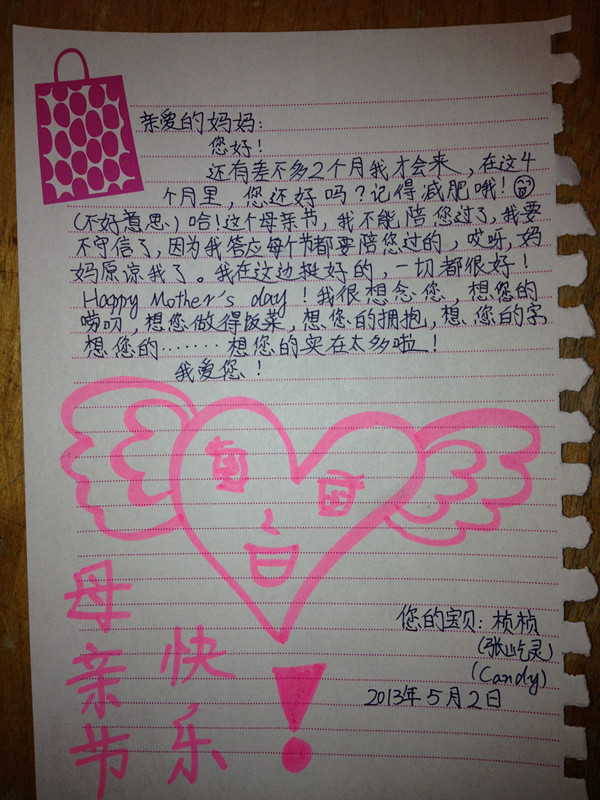 亲爱的妈妈:
您好!
还有差不多2个月我才会来,在这4
个月里,您还好吗?记得减肥哦!
(不好意思)哈!这个母亲节,我不能陪您过了,我要
不守信了,因为我答应每个节都要陪您过的,哎呀,妈
妈原谅我了。我在这边挺好的,一切都很好!
Happy Mother's day!我很想念您,想您的
唠叨,想您做得饭菜,想您的拥抱,想您的字
想您的........想您的实在太多啦!
我爱您!
您的宝贝:桢桢
(张屹灵)
(Candy)
2013年5月2日
母亲节
快乐!